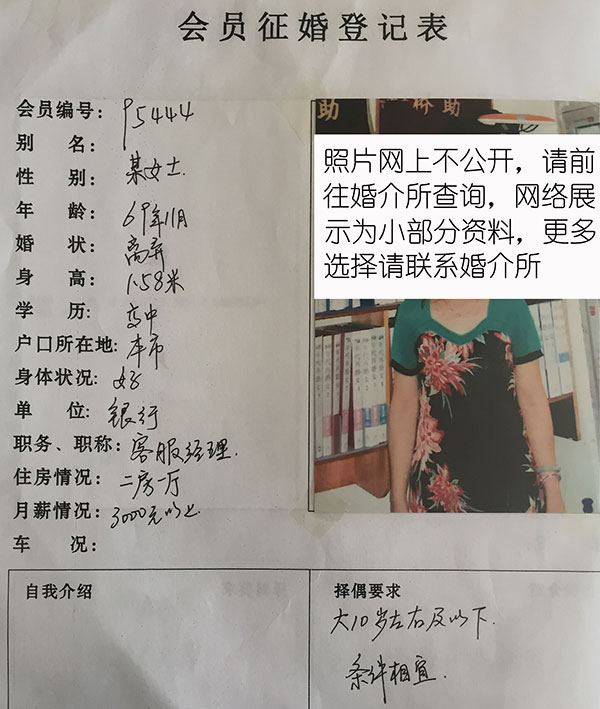 会员征婚登记表
会员编号: P5444
别 名: 某女士
性 别:
年 龄: 69年11月
婚 状: 离异
身 高: 1.58米
学 历: 高中
户口所在地: 本市
身体状况: 好
单 位: 银行
职务、职称: 客服经理.
住房情况: 二房一厅
月薪情况: 3000元以上
车 况:
助 桥助
照片网上不公开，请前
往婚介所查询，网络展
示为小部分资料，更多
选择请联系婚介所
自我介绍
择偶要求
大10岁左右及以下.
条件相宜.